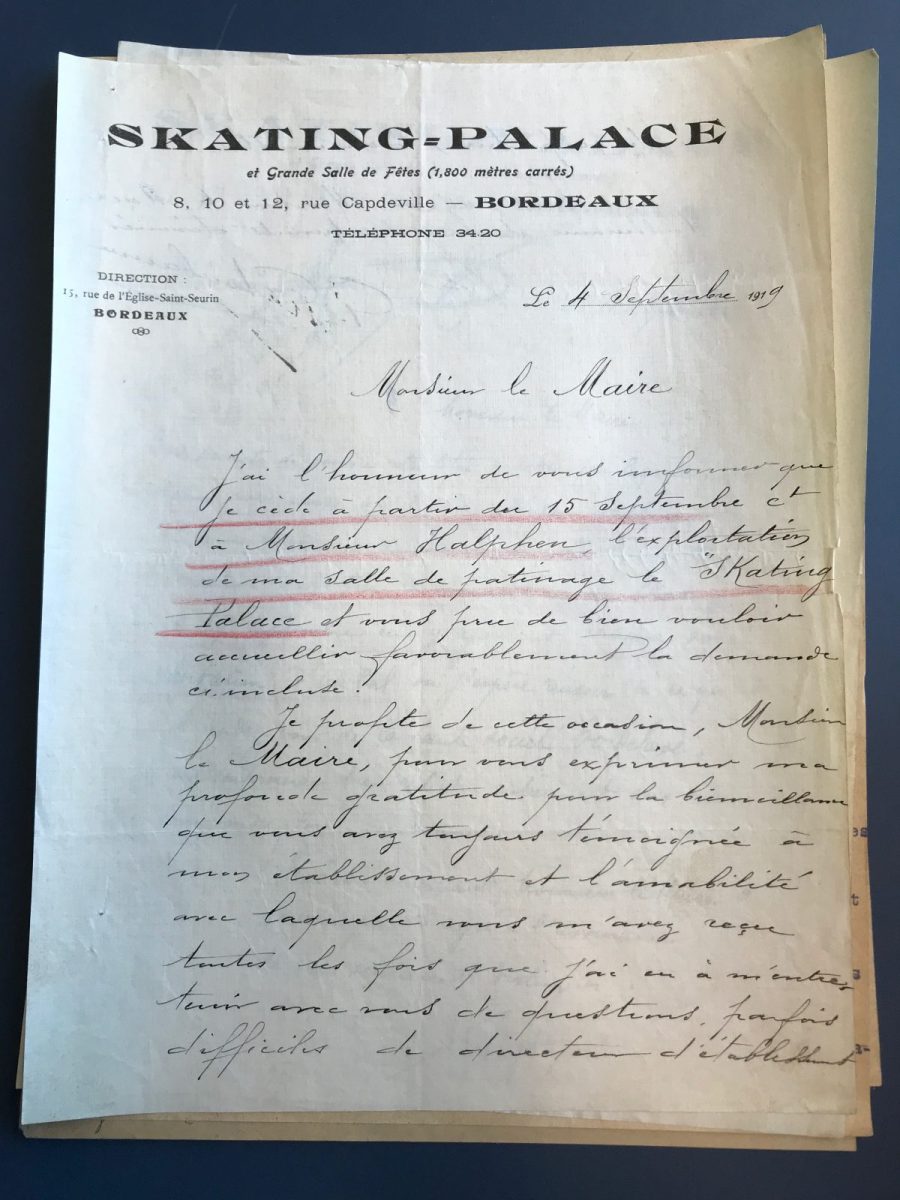 SKATING=PALACE
et Grande Salle de Fêtes (1,800 mètres carrés)
8, 10 et 12, rue Capdeville — BORDEAUX
TÉLÉPHONE 34.20
DIRECTION :
15, rue de l'Église-Saint-Seurin
BORDEAUX
Le 4 Septembre 1919
Monsieur le Maire
J'ai l'honneur de vous informer que
je cède à partir du 15 Septembre ct
à Monsieur Halphen, l'exploitation
de ma salle de patinage le "Skating
Palace et vous prie de bien vouloir
accueillir favorablement la demande
ci-incluse.
Je profite de cette occasion, Monsieur
le Maire, pour vous exprimer ma
profonde gratitude pour la bienveillance
que vous avez toujours témoignée à
mon établissement et l'amabilité
avec laquelle vous m'avez reçu
toutes les fois que j'ai eu à m'entre
tenir avec vous de questions, parfois
difficiles de directeur d'établissement